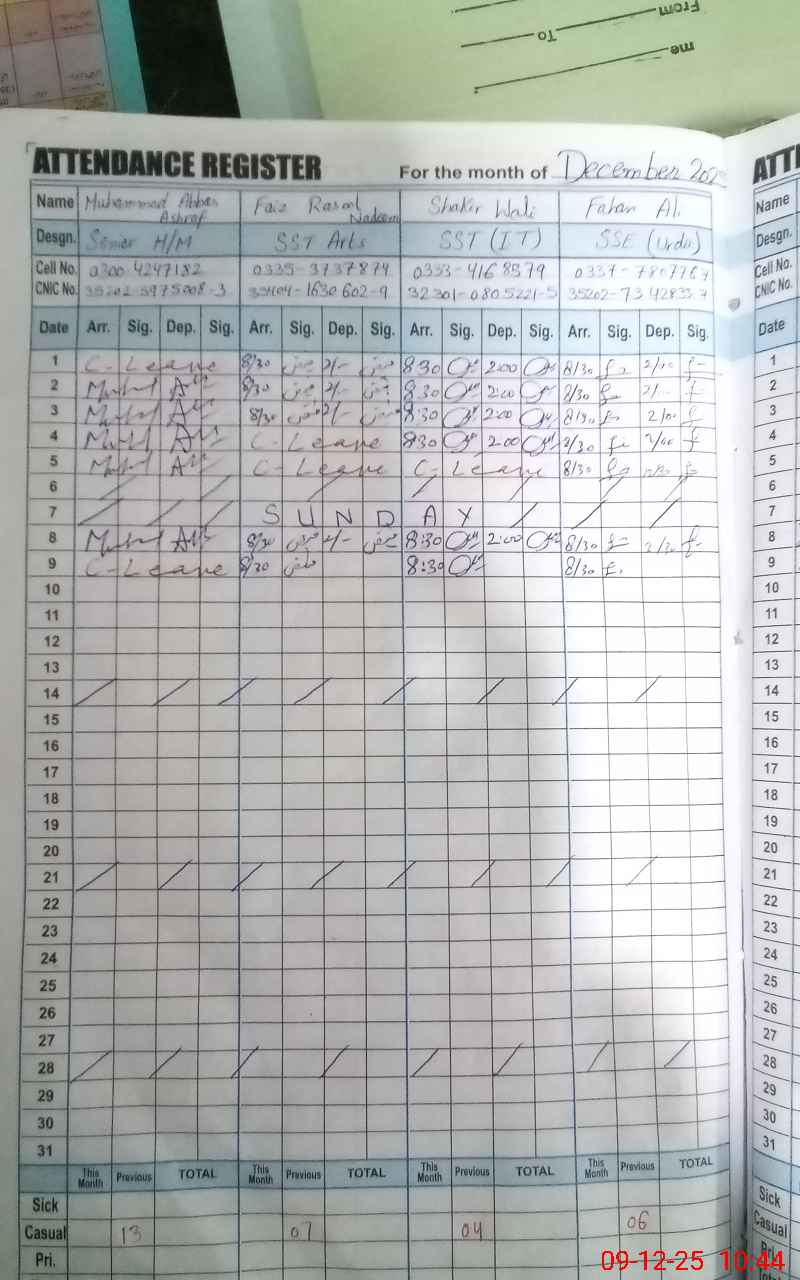 From
To
me
ATTENDANCE REGISTER For the month of December 202
Name Muhammad Abbas Ashraf Faiz Rasool Nadeem Shaker Wali Fahan Ali
Desgn. Senior H/M SST Arts SST (IT) SSE (Urdu)
Cell No. 0300 4247182 0335-3737874 0333-4168579
CNIC No. 35202-5975008-3 32301-0805221-5
Date Arr. Sig. Dep. Sig. Arr. Sig. Dep. Sig. Arr. Sig. Dep. Sig. Arr. Sig. Dep. Sig.
1 C-Leave 8/30 2/- 830 2:00 8/30 2/00
2 8/30 2/- 830 2:00 8/30
3 8/30 2/- 8:30 2:00 8/30 2/00
4 C-Leave 830 2:00 8/30 2/00
5 C-Leave C-Leave 8/30
6
7 SUNDAY
8 8/30 2/- 8:30 2:00 8/30
9 C-Leave 8/30 8:30 8/30
10
11
12
13
14
15
16
17
18
19
20
21
22
23
24
25
26
27
28
29
30
31
This Month Previous TOTAL This Month Previous TOTAL This Month Previous TOTAL This Month Previous TOTAL
Sick
Casual 13 07 04 06
Pri.
ATT
Name
Desgn.
Cell No.
CNIC No.
Date
1
2
3
4
5
6
7
8
9
10
11
12
13
14
15
16
17
18
19
20
21
22
23
24
25
26
27
28
29
30
31
Sick
Casual
09-12-25 10:44